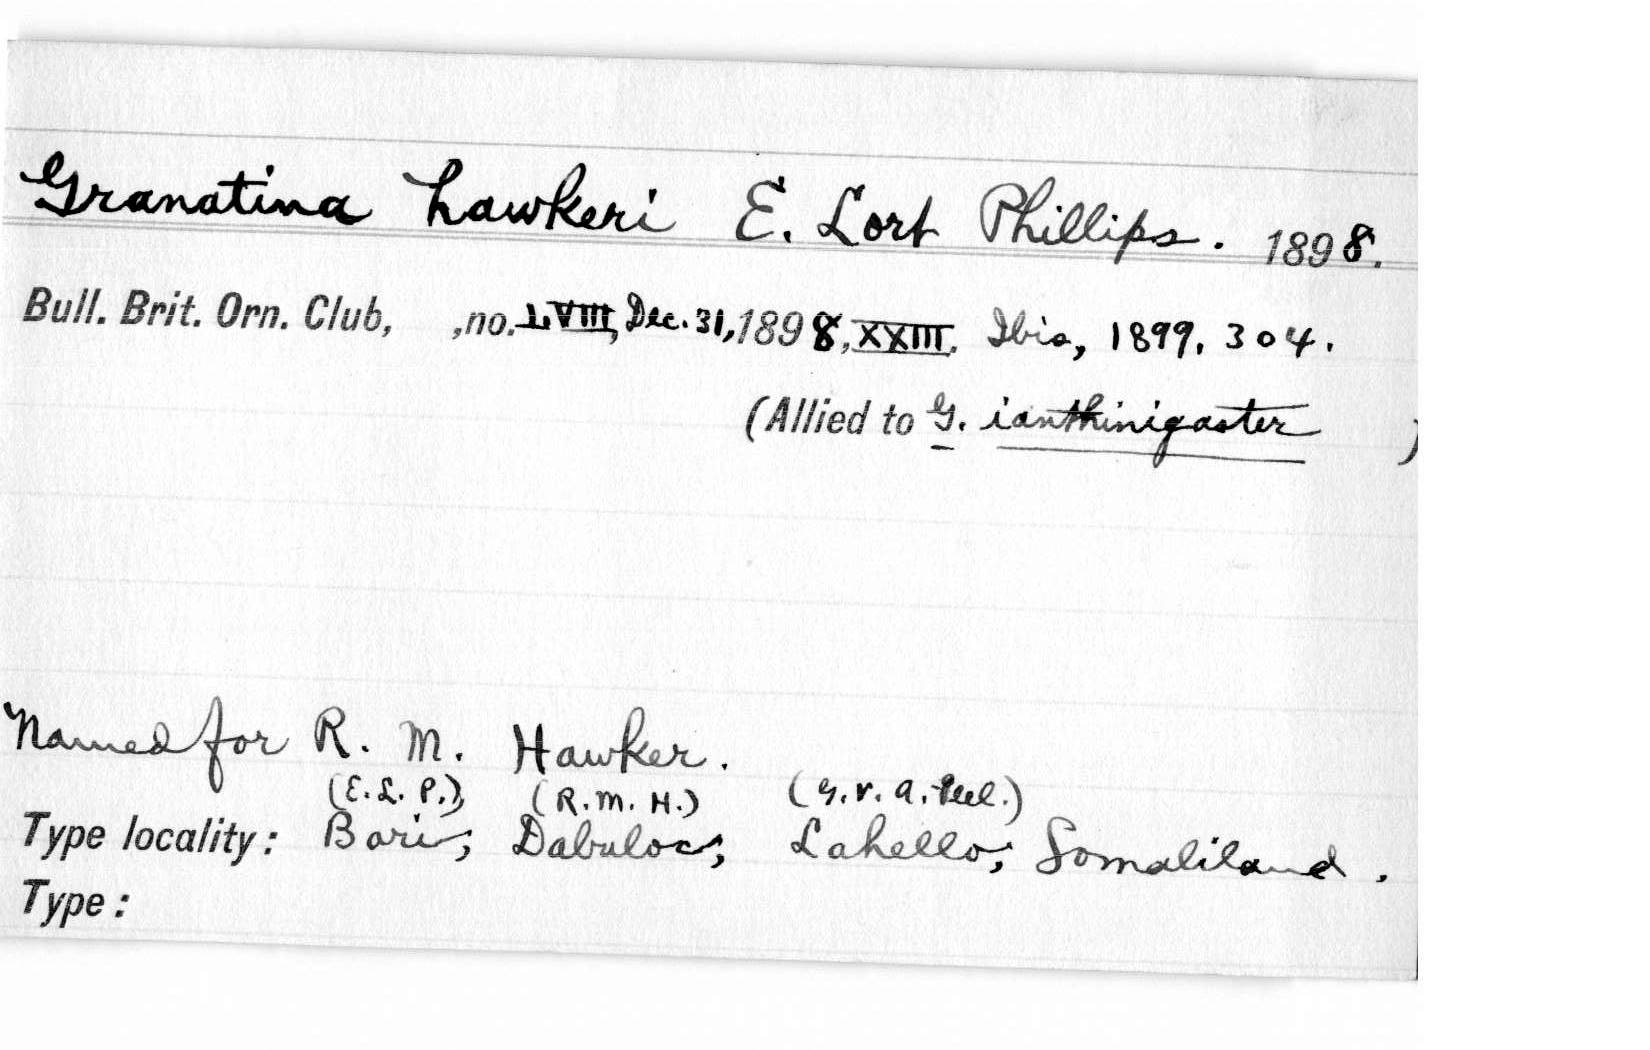 Granatina hawkeri E. Lort Phillips. 1898.
Bull. Brit. Orn. Club, ,no. LVIII, Dec. 31, 1898, XXIII. Ibis, 1899, 304.
(Allied to G. ianthinigaster )
Named for R. M. Hawker.
(E. L. P.), (R. M. H.) (G. V. A. Peel.)
Type locality: Bari; Dabuloc; Lahello; Somaliland.
Type: